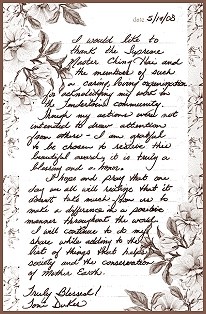 date 5/19/08
I would like to
thank the Supreme
Master Ching Hai and
the members of such
a caring, loving organization
for acknowledging my work in
the community.
Though my actions were not
intended to draw attention
from others - I am grateful
to be chosen to receive this
beautiful award, it is truly a
blessing and a honor.
I hope and pray that one
day we all will realize that it
doesnt take much from us to
make a difference in a positive
manner throughout the world.
I will continue to do my
share while adding to the
list of things that helps
society and the conservation
of Mother Earth.
Truly Blessed!